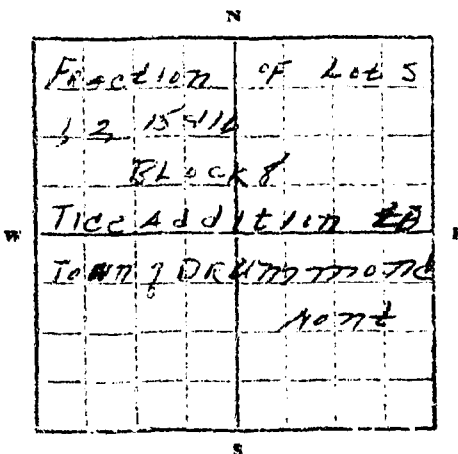 N
Fraction of Lots
1, 2, 15 & 16
Block 8
W
Tice Addition to
E
Town of Drummond
Mont
S